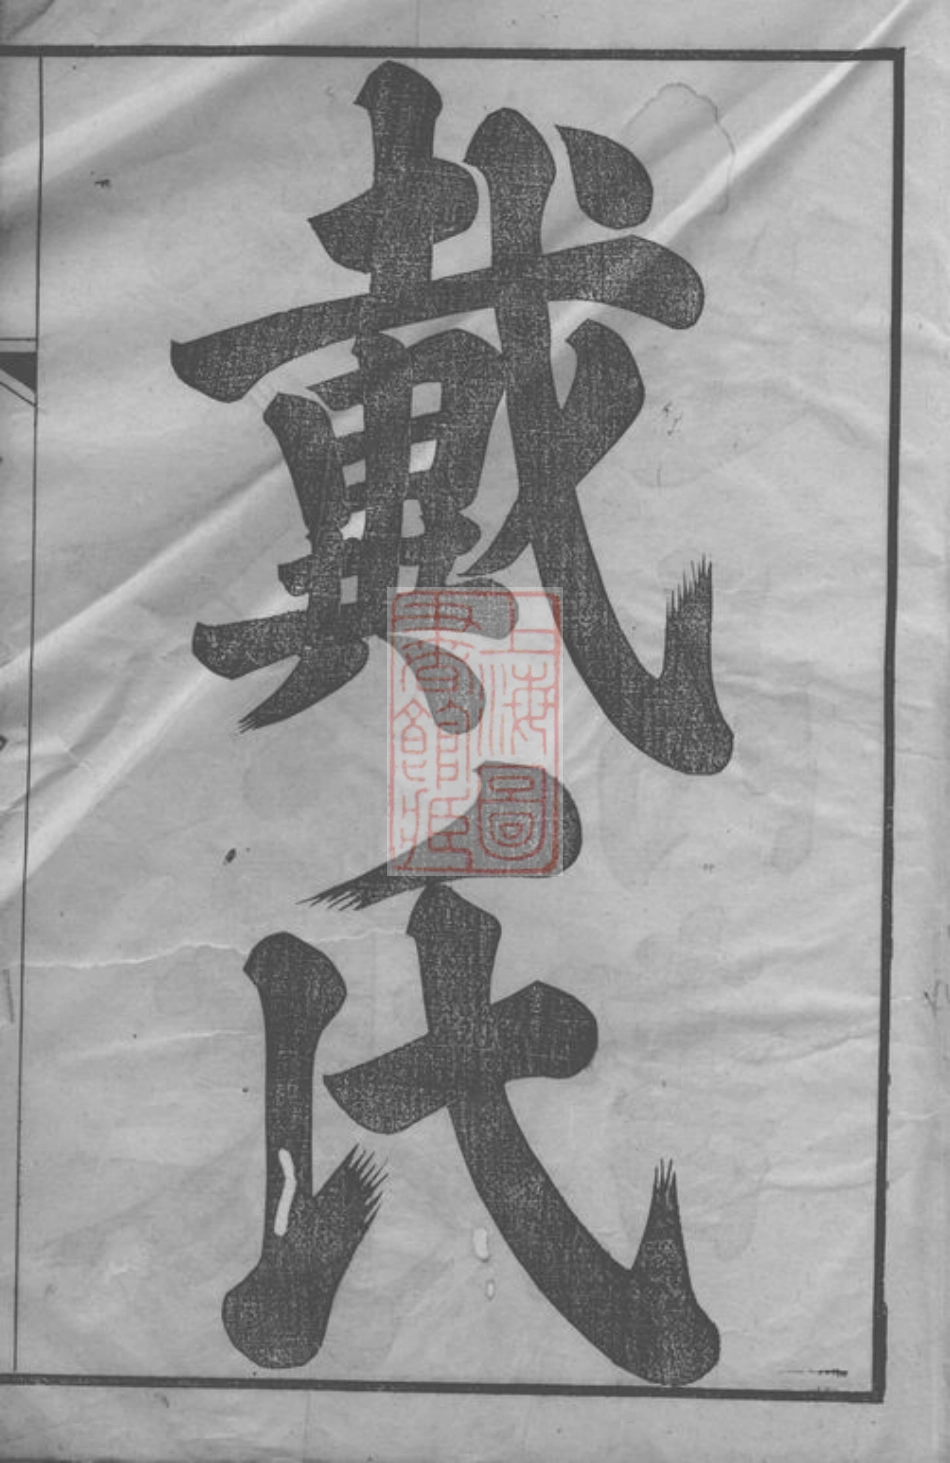 戴氏
上海圖
書館藏